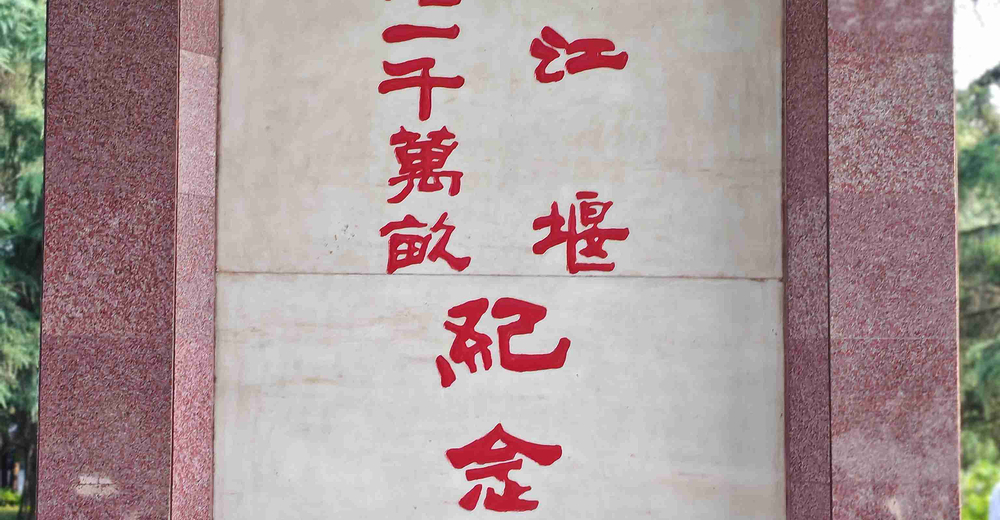 江堰
一千萬畝
紀念